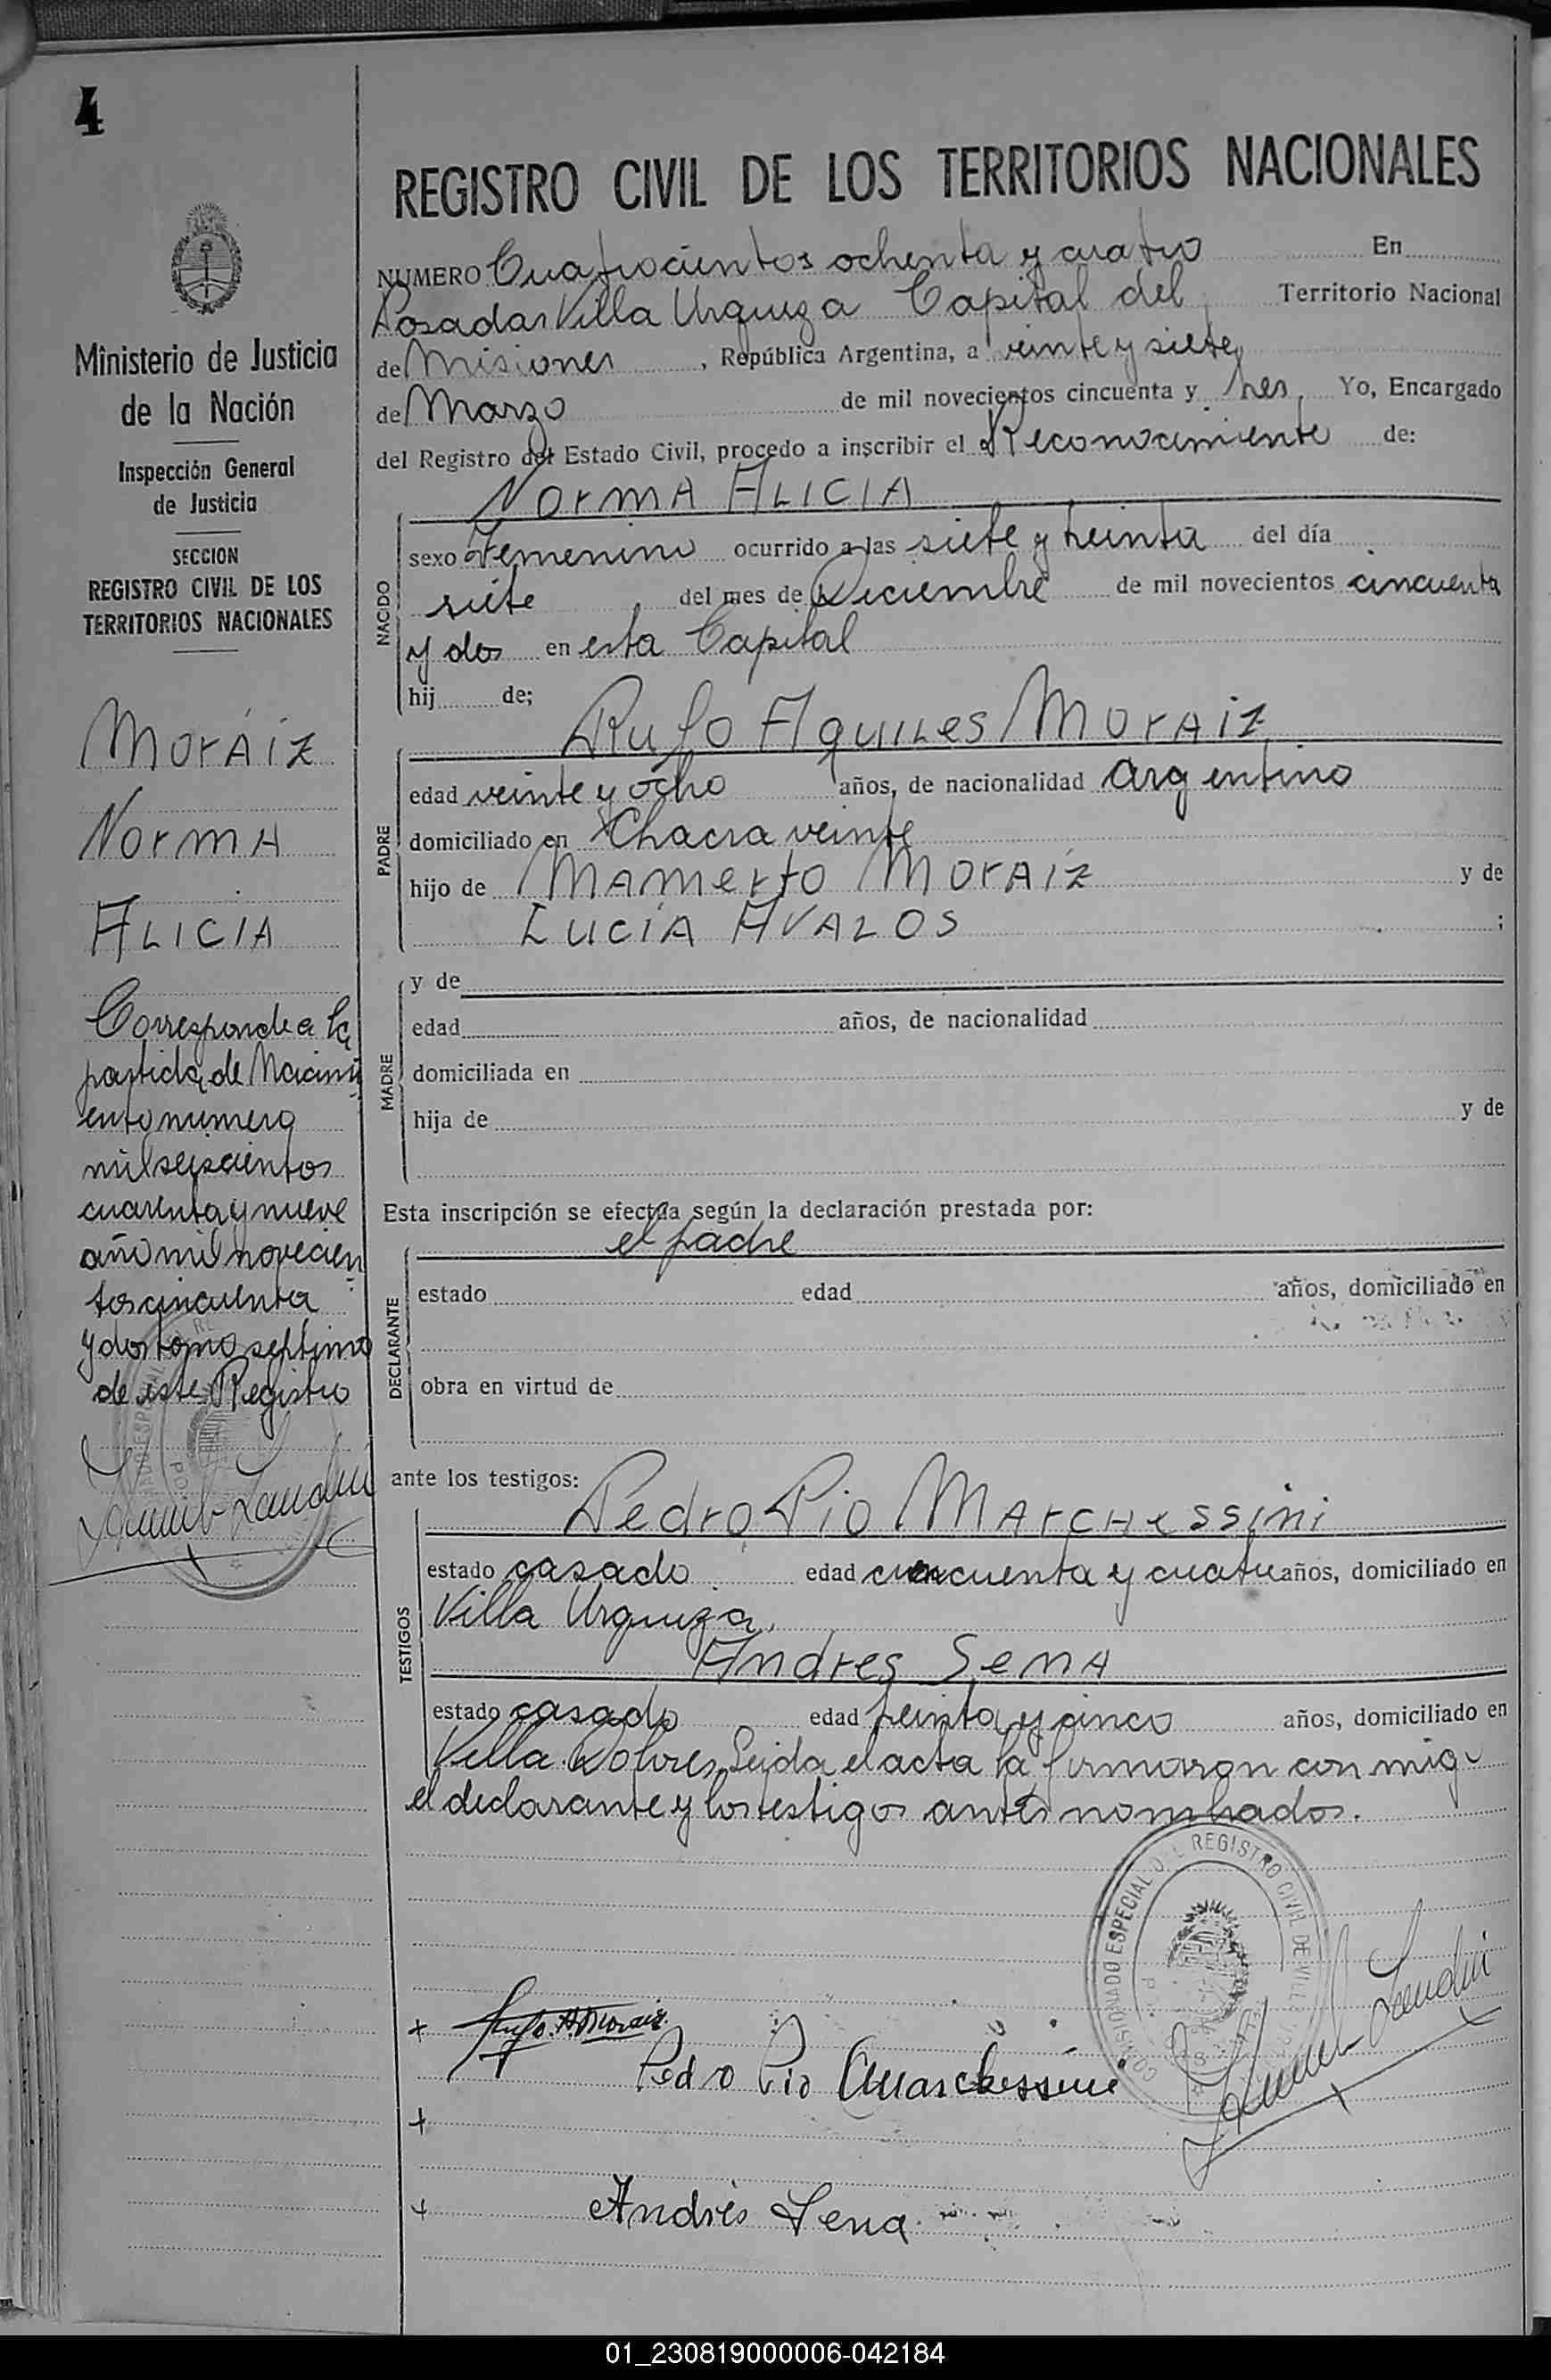 4
REGISTRO CIVIL DE LOS TERRITORIOS NACIONALES
NUMERO Cuatrocientos ochenta y cuatro En
Posadas Villa Urquiza Capital del Territorio Nacional
de Misiones, República Argentina, a veinte y siete
de Marzo de mil novecientos cincuenta y tres. Yo, Encargado
del Registro del Estado Civil, procedo a inscribir el Reconocimiento de:
NORMA ALICIA
NACIDO
sexo Femenino ocurrido a las siete y treinta del día
siete del mes de Diciembre de mil novecientos cincuenta
y dos en esta Capital
hij de;
Rufo AQUILES MORAIZ
PADRE
edad veinte y ocho años, de nacionalidad Argentino
domiciliado en Chacra veinte
hijo de MAMERTO MORAIZ y de
LUCIA AVALOS ;
MADRE
y de
edad años, de nacionalidad
domiciliada en
hija de y de
Esta inscripción se efectúa según la declaración prestada por:
el padre
DECLARANTE
estado edad años, domiciliado en
obra en virtud de
ante los testigos:
Pedro Pio MARCHESSINI
TESTIGOS
estado casado edad cincuenta y cuatro años, domiciliado en
Villa Urquiza.
ANDRES SENA
estado casado edad treinta y cinco años, domiciliado en
Villa Dolores, Leida el acta la firmaron conmigo
el declarante y los testigos antes nombrados.
Ministerio de Justicia
de la Nación
Inspección General
de Justicia
SECCION
REGISTRO CIVIL DE LOS
TERRITORIOS NACIONALES
MORÁIZ
NORMA
ALICIA
Corresponde a la
partida de Nacimi
ento numero
mil seiscientos
cuarenta y nueve
año mil novecien
tos cincuenta
y dos tomo septimo
de este Registro
COMISIONADO ESPECIAL DEL REGISTRO CIVIL DE VILLA
+ Rufo. A. Moraiz.
Pedro Pio Marchessini
+
+ Andrés Sena
01_230819000006-042184